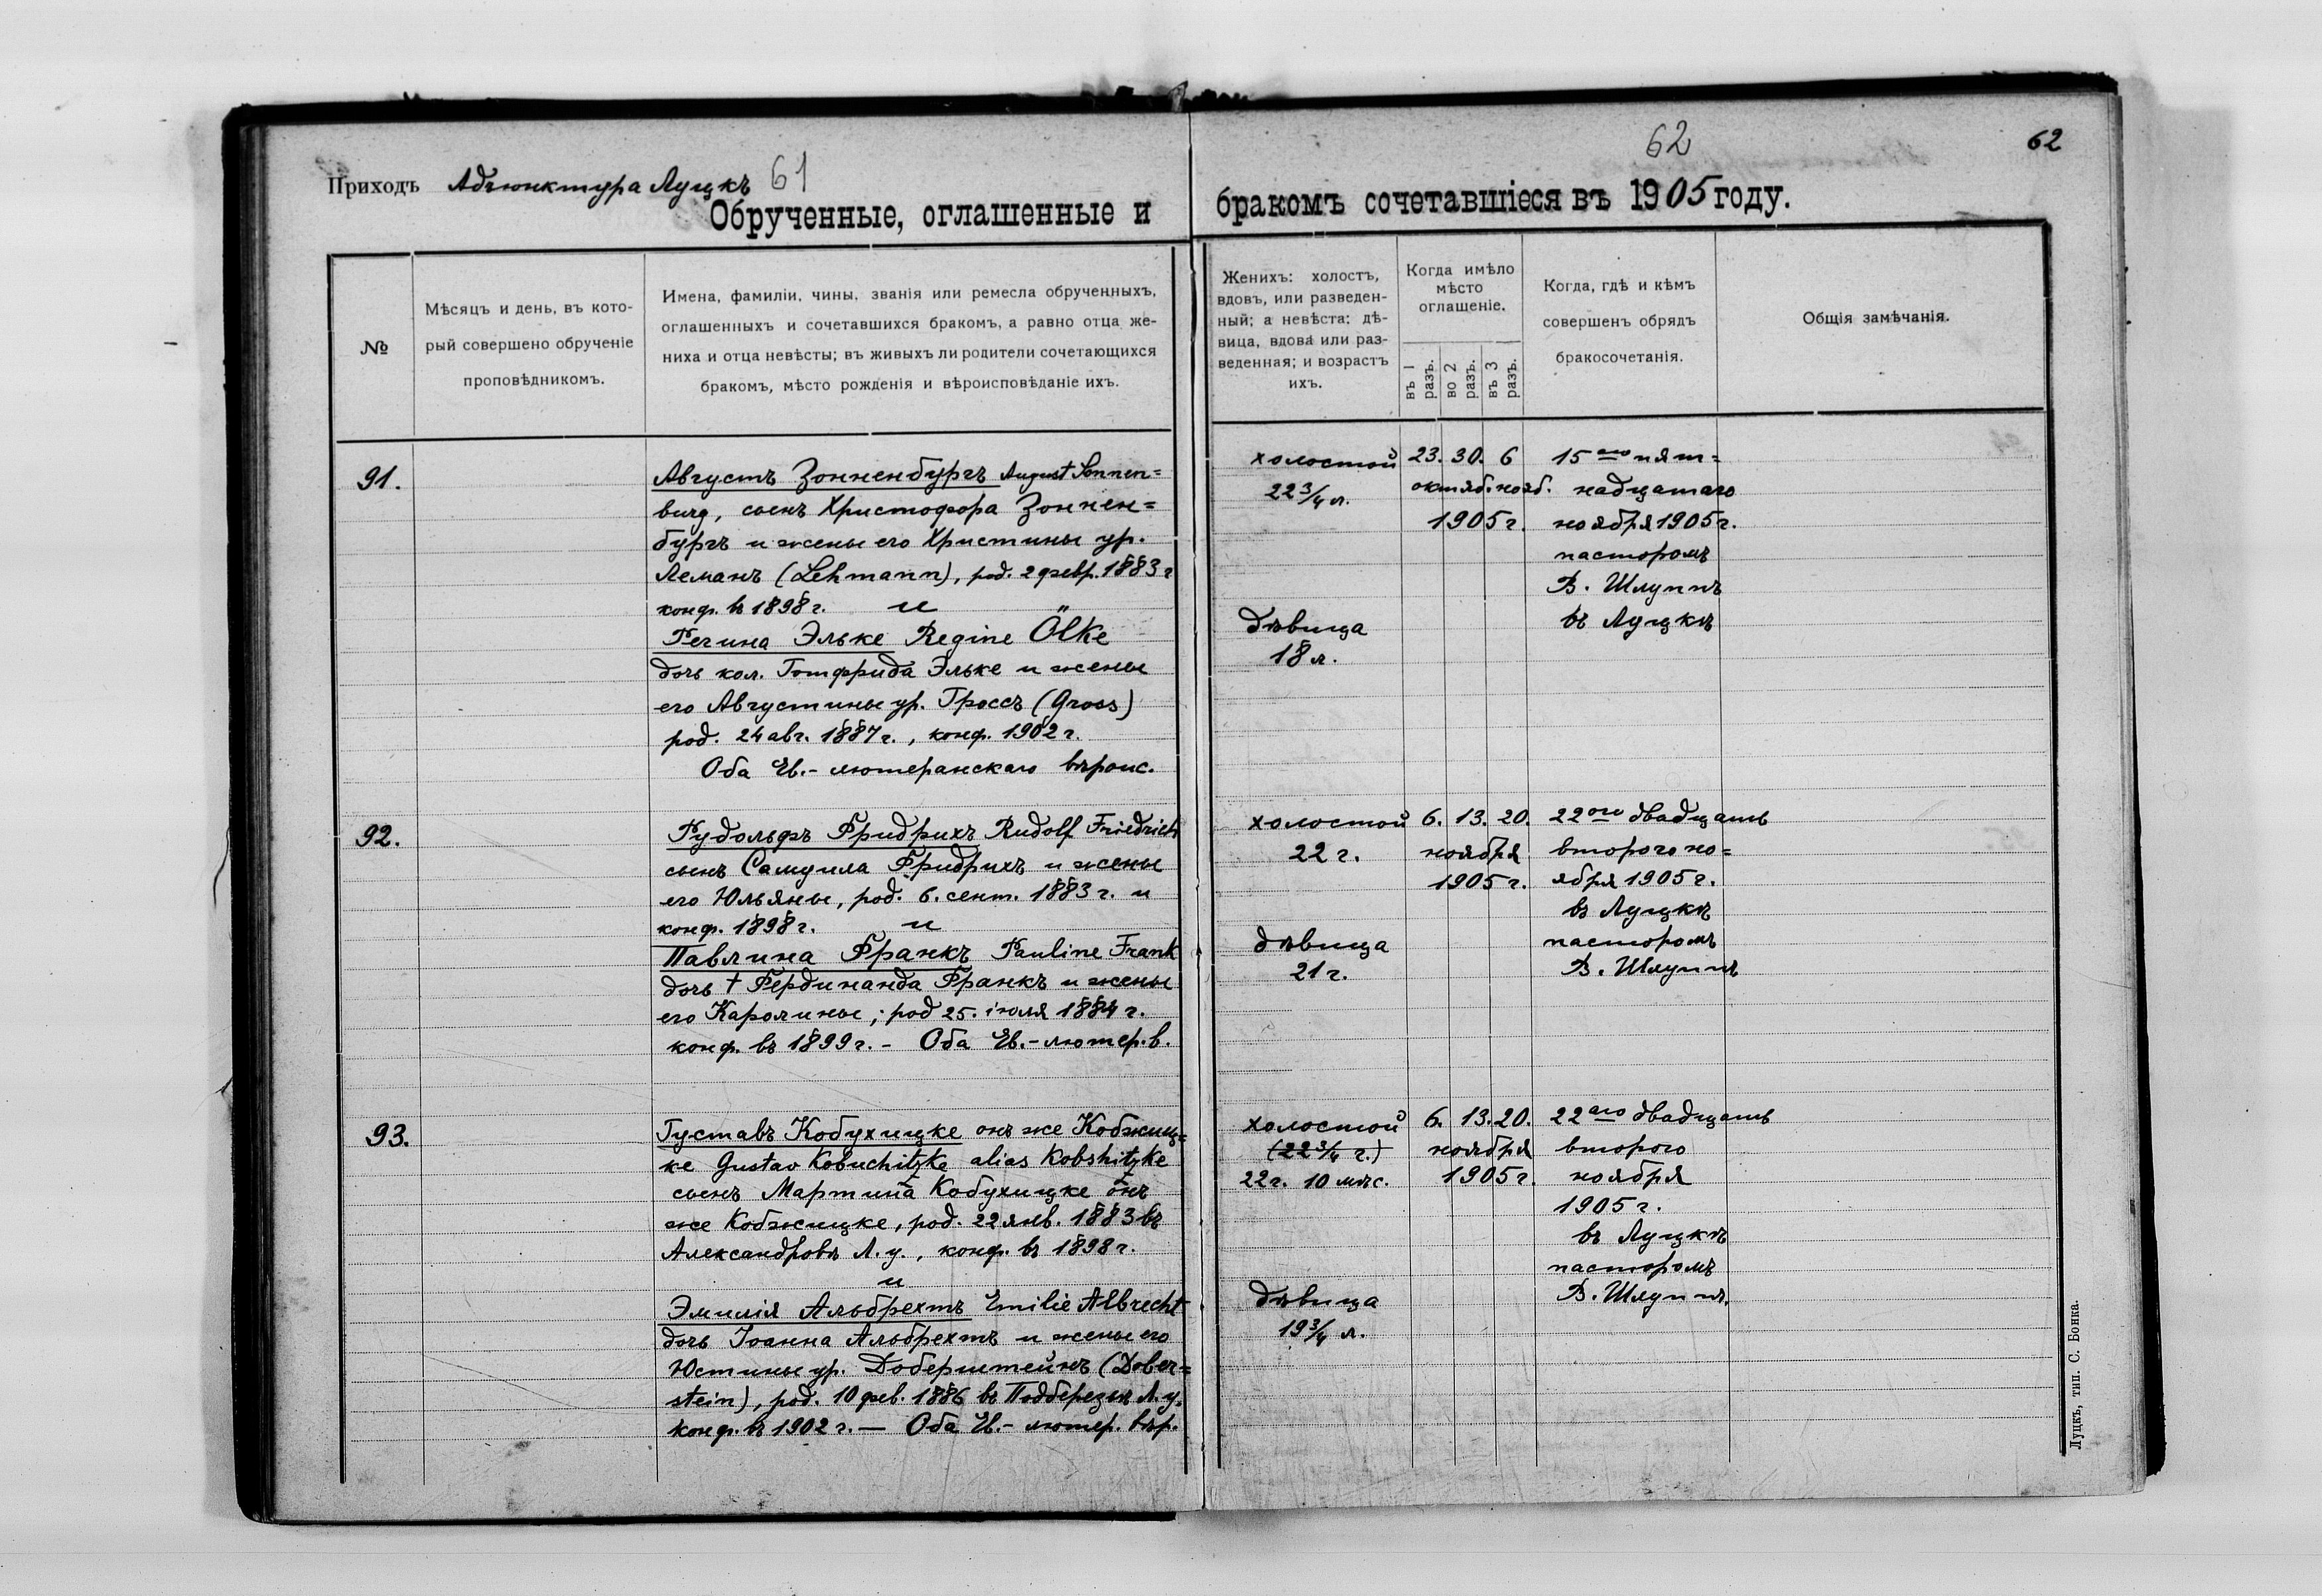 62
62
Приходъ Адъюнктура Луцкъ 61
Обрученные, оглашенные и бракомъ сочетавшіеся въ 1905 году.
№
Мѣсяцъ и день, въ кото-
рый совершено обрученіе
проповѣдникомъ.
Имена, фамиліи, чины, званія или ремесла обрученныхъ,
оглашенныхъ и сочетавшихся бракомъ, а равно отца же-
ниха и отца невѣсты; въ живыхъ ли родители сочетающихся
бракомъ, мѣсто рожденія и вѣроисповѣданіе ихъ.
Женихъ: холостъ,
вдовъ, или разведен-
ный; а невѣста: дѣ-
вица, вдова или раз-
веденная; и возрастъ
ихъ.
Когда имѣло
мѣсто
оглашеніе.
въ 1 разъ.
во 2 разъ.
въ 3 разъ.
Когда, гдѣ и кѣмъ
совершенъ обрядъ
бракосочетанія.
Общія замѣчанія.
91.
Августъ Зонненбургъ August Sonnen=
burg, сынъ Христофора Зоннен=
бургъ и жены его Христины ур.
Леманъ (Lehmann), род. 2 февр. 1883 г
конф. въ 1898 г. и
Регина Эльке Regine Ölke
дочь кол. Готфрида Эльке и жены
его Августины ур. Гроссъ (Gross)
род. 24 авг. 1887 г., конф. 1902 г.
Оба Ев.- лютеранскаго вѣроис.
холостой
22 3/4 л.
дѣвица
18 л.
23. 30. 6
октяб. нояб.
1905 г.
15 аго пят=
надцатаго
ноября 1905 г.
пасторомъ
В. Шлуппъ
въ Луцкѣ
92.
Рудольфъ Фридрихъ Rudolf Friedrich
сынъ Самуила Фридрихъ и жены
его Юльяны, род. 6. сент. 1883 г. и
конф. 1898 г. и
Павлина Франкъ Pauline Frank
дочь † Фердинанда Франкъ и жены
его Каролины; род 25. іюля 1884 г.
конф. въ 1899 г. - Оба Ев.-лютер. в.
холостой
22 г.
дѣвица
21 г.
6. 13. 20.
ноября
1905 г.
22 ого двадцать
второго но=
ября 1905 г.
въ Луцкѣ
пасторомъ
В. Шлуппъ
93.
Густавъ Кобухицке онъ же Кобжиц=
ке Gustav Kobuchitzke alias Kobshitzke
сынъ Мартина Кобухицке онъ
же Кобжицке, род. 22 янв. 1883 въ
Александровѣ Л. у., конф. въ 1898 г.
и
Эмилія Альбрехтъ Emilie Albrecht
дочь Іоанна Альбрехтъ и жены его
Юстины ур. Доберштейнъ (Dober=
stein), род. 10 фев. 1886 въ Подберезьѣ Л. у.
конф. въ 1902 г. — Оба Ев.- лютер. вѣр.
холостой
(22 3/4 г.)
22 г. 10 мѣс.
дѣвица
19 3/4 л.
6. 13. 20.
ноября
1905 г.
22 аго двадцать
второго
ноября
1905 г.
въ Луцкѣ
пасторомъ
В. Шлуппъ.
Луцкъ, тип. С. Бонка.